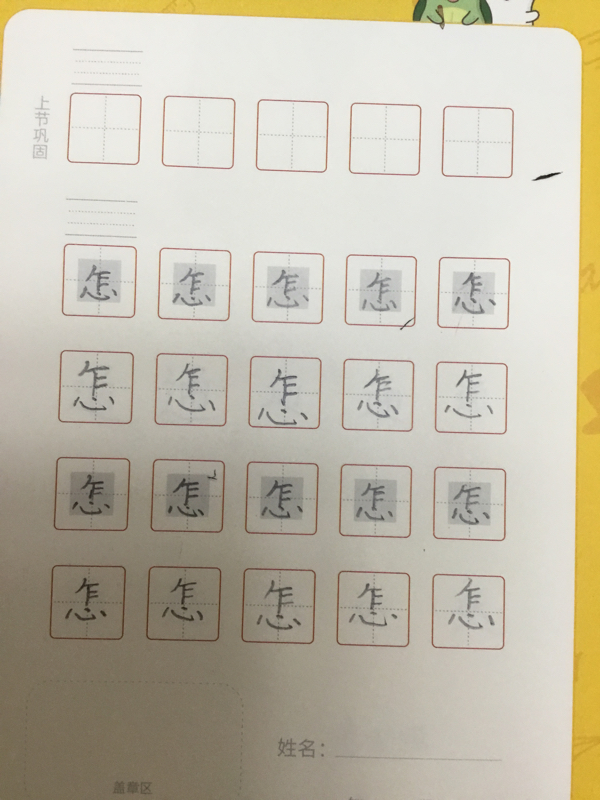 上节巩固
怎 怎 怎 怎 怎
怎 怎 怎 怎 怎
怎 怎 怎 怎 怎
怎 怎 怎 怎 怎
姓名：
盖章区